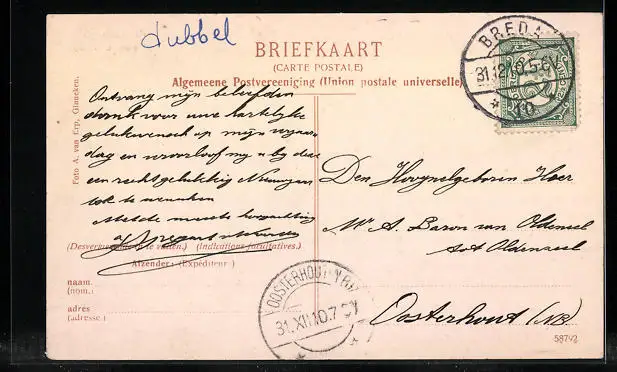 dubbel
BRIEFKAART
(CARTE POSTALE)
Algemeene Postvereeniging (Union postale universelle)
Foto A. van Erp, Ginneken.
Ontvang mijn beleefden
dank voor uwe hartelijke
gelukwensch op mijn verjaar-
dag en veroorloof mij u bij deze
een recht gelukkig Nieuwjaar
toe te wenschen
Met de meeste hoogachting
(Indications facultatives.)
Afzender: (Expéditeur)
naam.
(nom.)
adres
(adresse.)
Den Hoogwelgeboren Heer
Mr A. Baron van Oldeneel
tot Oldenzeel
Oosterhout (NB)
58792
BREDA
31.12
10
OOSTERHOUT
31.XII.10.7